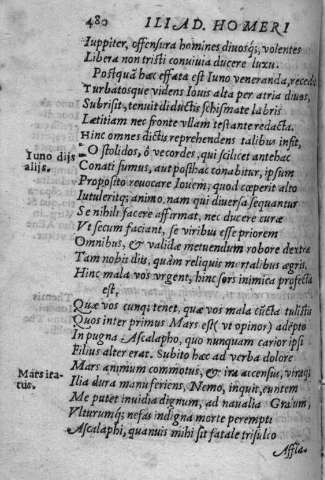 480 ILIAD. HOMERI
Iuppiter, offensura homines diuosq́;, volentes
Libera non tristi conuiuia ducere luxu.
Postquā hæc effata est Iuno veneranda, recedit
Turbatosque videns Iouis alta per atria diuos,
Subrisit, tenuit diductis schismate labris
Lætitiam nec fronte vllam testante redacta.
Hinc omnes dictis reprehendens talibus insit,
Iuno dijs alijs.
O stolidos, ô vecordes, qui scilicet antehac
Conati sumus, aut posthac conabitur, ipsum
Proposito reuocare Iouem; quod cœperit alto
Intuleritq́; animo, nam qui diuersa sequantur
Se nihili facere affirmat, nec ducere curæ
Vt secum faciant, se viribus esse priorem
Omnibus, & validæ metuendum robore dextræ
Tam nobis diis, quàm reliquis mortalibus agris.
Hinc mala vos vrgent, hinc sors inimica profecta
est,
Quæ vos cunq; tenet, quæ vos mala cūcta tulistis
Quos inter primus Mars est (vt opinor) adepto
In pugna Ascalapho, quo nunquam carior ipsi
Filius alter erat. Subito hæc ad verba dolore
Mars iratus.
Mars animum commotus, & ira accensus, viraq;
Ilia dura manu feriens, Nemo, inquit, euntem
Me putet inuidia dignum, ad naualia Graium,
Vlturumq; nefas indigna morte perempti
Ascalaphi, quanuis mihi sit fatale trisulco
Affla-